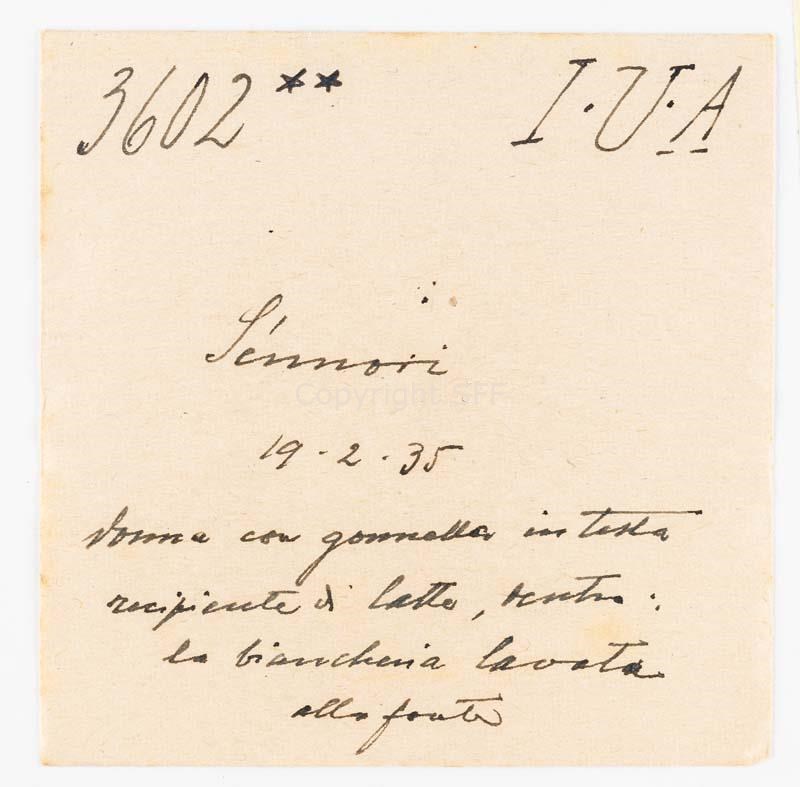 3602** I·U·A
Sénnori
Copyright SFF
19-2-35
donna con gonnella in testa
recipiente di latta, dentro:
la biancheria lavata
alla fonte